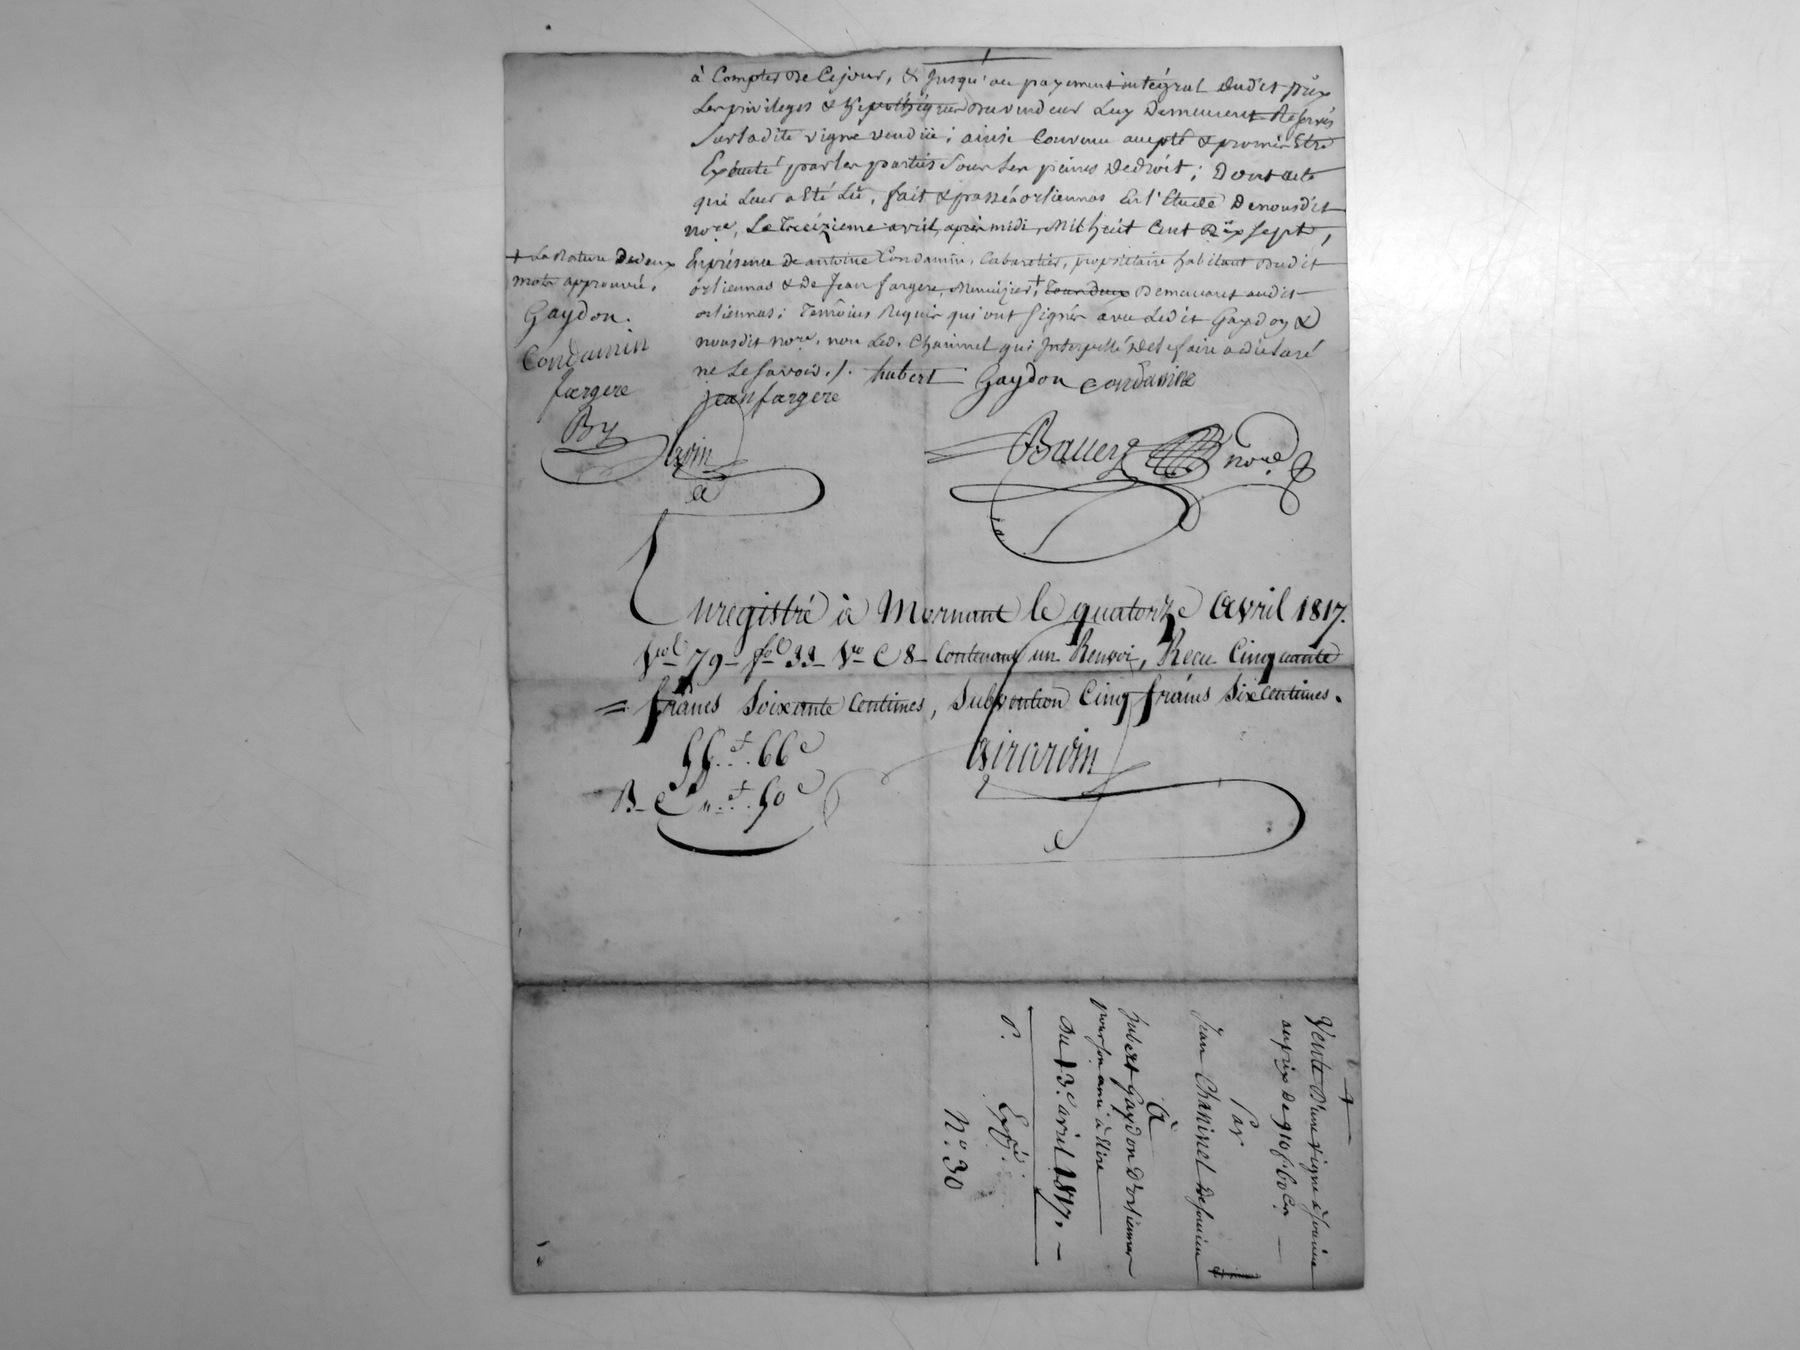 à Compter de Cejour, & Jusqu'au payement intégral dudit prix
Les privileges & hypothéques du vendeur Luy Demeurent Reservés
Surladite vigne vendüe; ainsi Convenu accepté & promis Etre
Exécuté par les parties Sous les peines de droit; Dont acte
qui Leur a Eté Lû, fait & passé à orliennas En l'Etude De nousdit
nore, Le Treizieme avril, après midi, Mil huit Cent Dix Sept,
Enprésence de antoine Condamin, Cabaretier, propriétaire habitant dudit
orliennas & de Jean fargere, Menuizier, + Tous deux Demeurant audit
orliennas; Temoins Requis qui ont Signés avec Ledit Gaydon &
nousdit nore, non Led. Chaninel qui Interpellé de le faire a déclaré
ne Le Savoir./. hubert Gaydon Condamin
jean fargere
+ La Rature De deux
mots approuvée.
Gaydon.
Condamin
fargere
By
Bauery nore
Enregistré à Mornant le quatorze Avril 1817.
vol 79 fol 33 vo C 8 Contenant un Renvoi, Reçu Cinquante
= francs Soixante Centimes, Subvention Cinq francs Six Centimes.
55.f 66c
B C " f. 50c
Girardin
Vente D'une vigne à
au prix de 910 f. 60 Cs
Par
Jean Chaninel de
À
hubert Gaydon D'orliennas
pour son ami à Elire
Du 13e avril 1817.
Expé.
No. 30